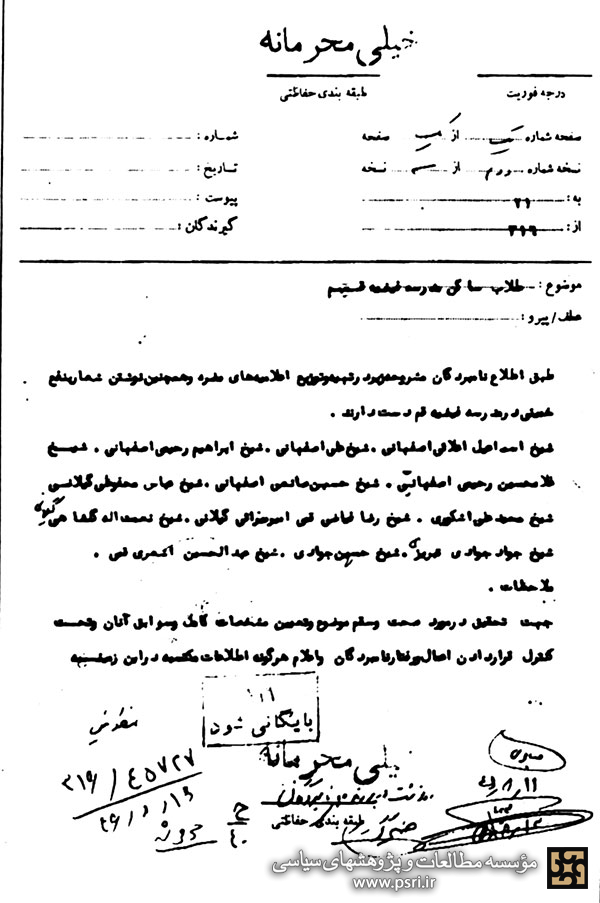 خیلی محرمانه
درجه فوریت
طبقه بندی حفاظتی
صفحه شماره یک از یک صفحه
شماره :
نسخه شماره دوم از سه نسخه
تاریخ :
به : ۲۱
پیوست :
از : ۳۱۶
گیرندگان :
موضوع : طلاب ساکن مدرسه فیضیه قم
عطف / پیرو :
طبق اطلاع نامبردگان مشروحه زیر در تهیه و توزیع اعلامیه‌های مضره و همچنین نوشتن شعار بنفع
خمینی در مدرسه فیضیه قم دست دارند .
شیخ اسماعیل اصفهانی . شیخ علی اصفهانی . شیخ ابراهیم رحیمی اصفهانی . شیخ
غلامحسین رحیمی اصفهانی . شیخ حسین صانعی اصفهانی . شیخ عباس محفوظی گیلانی
شیخ محمد علی اشکوری . شیخ رضا قمی گیلانی . شیخ نعمت اله
شیخ جواد جوادی تبریزی . شیخ حسین جوادی . شیخ عبدالحسین قمی .
ملاحظات .
جهت تحقیق در مورد صحت و سقم موضوع و تعیین مشخصات کامل و سوابق آنان و تحت
کنترل قرار دادن اعمال و رفتار نامبردگان و اعلام هرگونه اطلاعات مکتسبه در این زمینه
بایگانی شود
خیلی محرمانه
۳۱۶/۴۵۷۲۷
طبقه بندی حفاظتی
مؤسسه مطالعات و پژوهشهای سیاسی
www.psri.ir